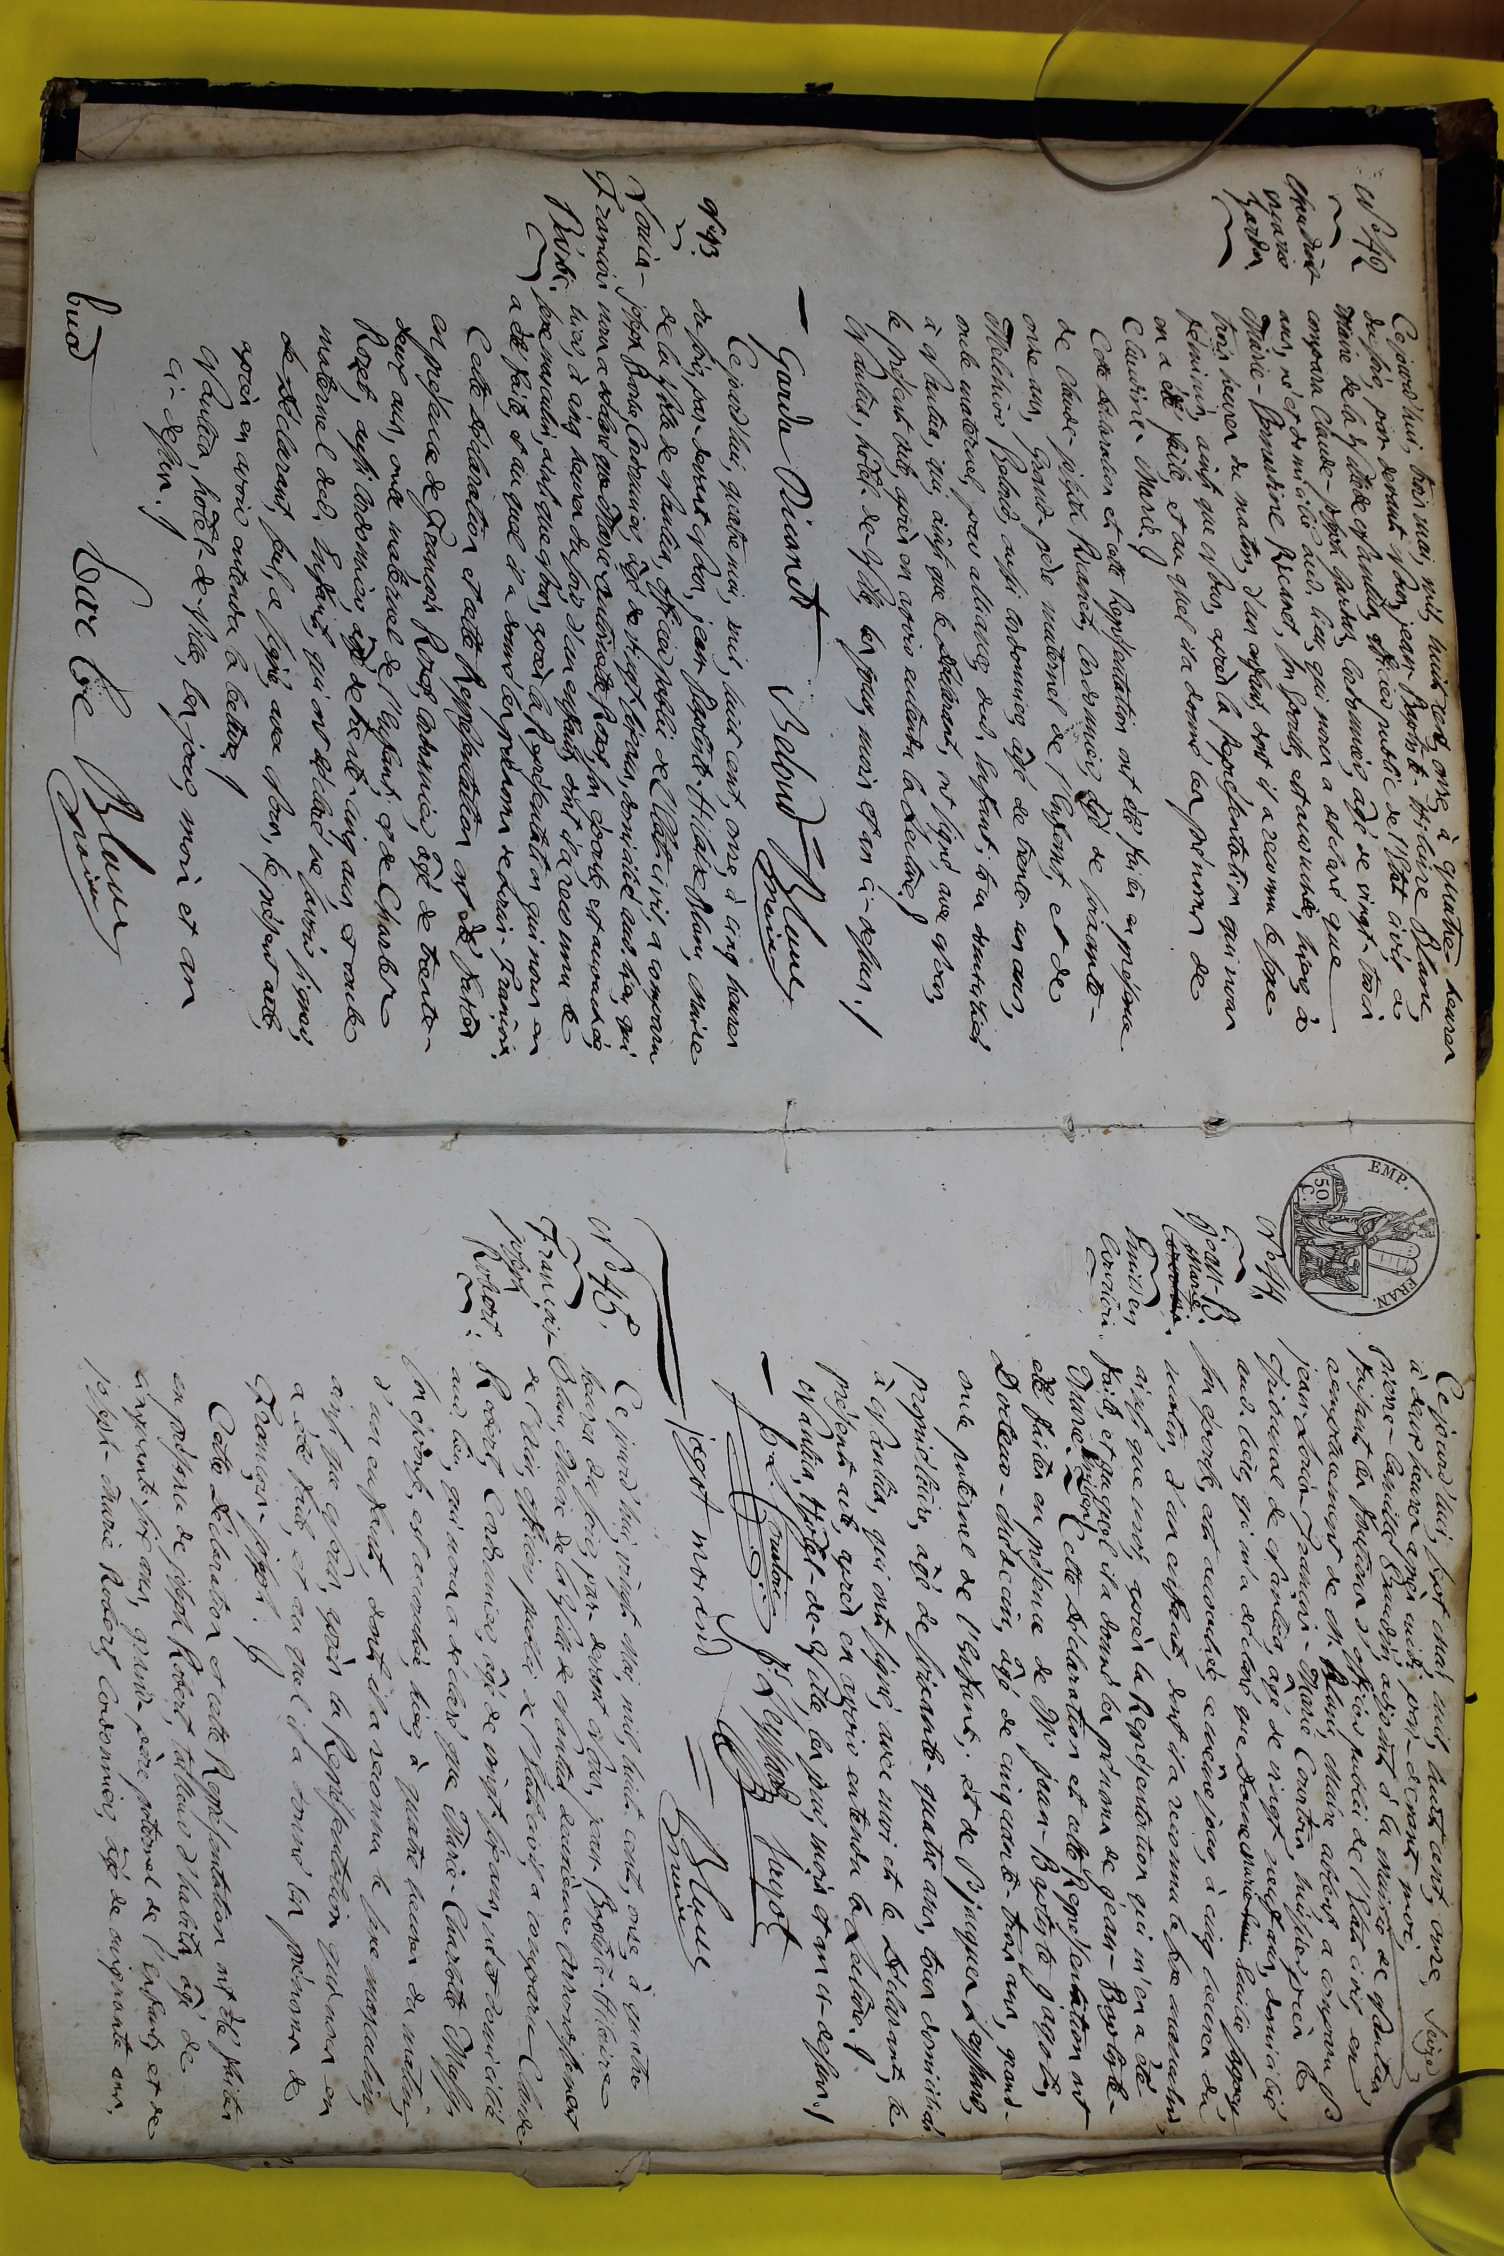 N.o 42
Claudine
Marie
Gardes
Ce jourd'hui, trois mai, mil huit cent, onze à quatre heures
du soir, par devant Nous, jean Baptiste-Hilaire Blanc,
Maire de la Ville de Nantua, officier public de l'Etat civil a
comparu Claude-joseph cordonnier, agé de vingt-trois
ans, né et domicilié aud. lieu, qui nous a déclaré que
Marie-Bernardine Ricanet, son épouse, est accouchée, hier, à
trois heures du matin, d'un enfant, dont il a reconnu le sexe
feminin, ainsi que Nous, après la Représentation qui nous
en a été faite, et au quel il a donné les prénoms de
Claudine-Marie.
Cette déclaration et cette Représentation ont été faites en présence
de Claude-joseph Ricanet, Cordonnier, agé de soixante-
onze ans, Grand-père maternel de l'Enfant, et de
Melchior Beloud, aussi cordonnier, agé de trente-un ans,
oncle maternel, par alliance, dud. Enfant; tous domiciliés
à Nantua, qui, ainsi que le déclarant, ont signé avec Nous,
le présent acte, après en avoir entendu la Lecture.
Nantua, hôtel-de-Ville les jour, mois et an ci-dessus.
Garde Ricanet Beloud Blanc
maire
N.o 43.
Louis-
François
Ce jourd'hui, quatre mai, mil, huit cent, onze, à cinq heures
du soir, par-devant Nous, jean Baptiste-Hilaire Blanc, Maire
de la Ville de Nantua, officier public de l'Etat civil, a comparu
joseph Cordonnier, agé de vingt ans, domicilié aud. lieu, qui
nous a déclaré que Marie Roset, son épouse, est accouchée,
hier, à cinq heures du soir, d'un enfant, dont il a reconnu le
sexe masculin, ainsi que Nous, après la Représentation qui nous en
a été faite, et au quel il a donné les prénoms de Louis-François.
Cette déclaration et cette Représentation ont été faites
en présence de François Roset, cordonnier, agé de trente-
deux ans, oncle maternel de l'Enfant, et de Charles
Roset, aussi cordonnier, agé de trente-cinq ans, et oncle
maternel dud. Enfant, qui ont déclaré ne savoir signer;
Le déclarant, seul, a signé, avec Nous, le présent acte,
après en avoir entendu la Lecture.
Nantua, hôtel-de-Ville, les jour, mois et an
ci-dessus.
Blanc
maire
EMP. FRAN.
50. C.
N.o 44
Jean-B.
Marie
Emilien
Ce jourd'hui, sept mai mil huit cent, onze,
à deux heures après midi, par-devant moi,
Pierre-Camille adjoint à la mairie de Nantua,
faisant les fonctions d'officier public de l'Etat civil, en
remplacement de M. Blanc, Maire absent, a comparu
jean-Louis-François-Marie huissier près le
tribunal de Nantua, agé de vingt neuf ans, domicilié
aud. lieu, qui m'a déclaré que
son épouse, est accouchée, ce même jour, à cinq heures du
matin, d'un enfant, dont il a reconnu le sexe masculin,
ainsi que moi, après la Représentation qui m'en a été
faite, et au quel il a donné les prénoms de Jean-Baptiste-
Marie Emilien. Cette déclaration et cette Représentation ont
été faites en présence de M. jean-Baptiste jagot,
Docteur-Médecin, agé de cinquante-trois ans, grand-
oncle paternel de l'Enfant; et de
propriétaire, agé de soixante-quatre ans, tous domiciliés
à Nantua, qui ont signé, avec moi et le déclarant, le
présent acte, après en avoir entendu la Lecture.
Nantua, Hôtel-de-Ville, les jour, mois et an ci-dessus.
jagot
Blanc
maire
N.o 45.
François-
joseph
Robert
Ce jourd'hui, vingt Mai, mil, huit cent, onze, à quatre
heures du soir, par devant Nous, jean-Baptiste-Hilaire
Blanc, Maire de la Ville de Nantua, deuxième arrondissement
de l'Ain, officier public de l'Etat civil, a comparu Claude
Robert, Cordonnier, agé de vingt sept ans, né et domicilié
aud. lieu, qui nous a déclaré que Marie-Charlotte
son épouse, est accouchée, hier, à quatre heures du matin,
d'un enfant, dont il a reconnu le sexe masculin,
ainsi que Nous, après la Représentation qui nous en
a été faite, et au quel il a donné les prénoms de
François-joseph.
Cette déclaration et cette Représentation ont été faites
en présence de joseph Robert, tailleur d'habits, agé de
cinquante-six ans, grand-père paternel de l'enfant, et de
joseph-Marie Robert, Cordonnier, agé de cinquante ans,